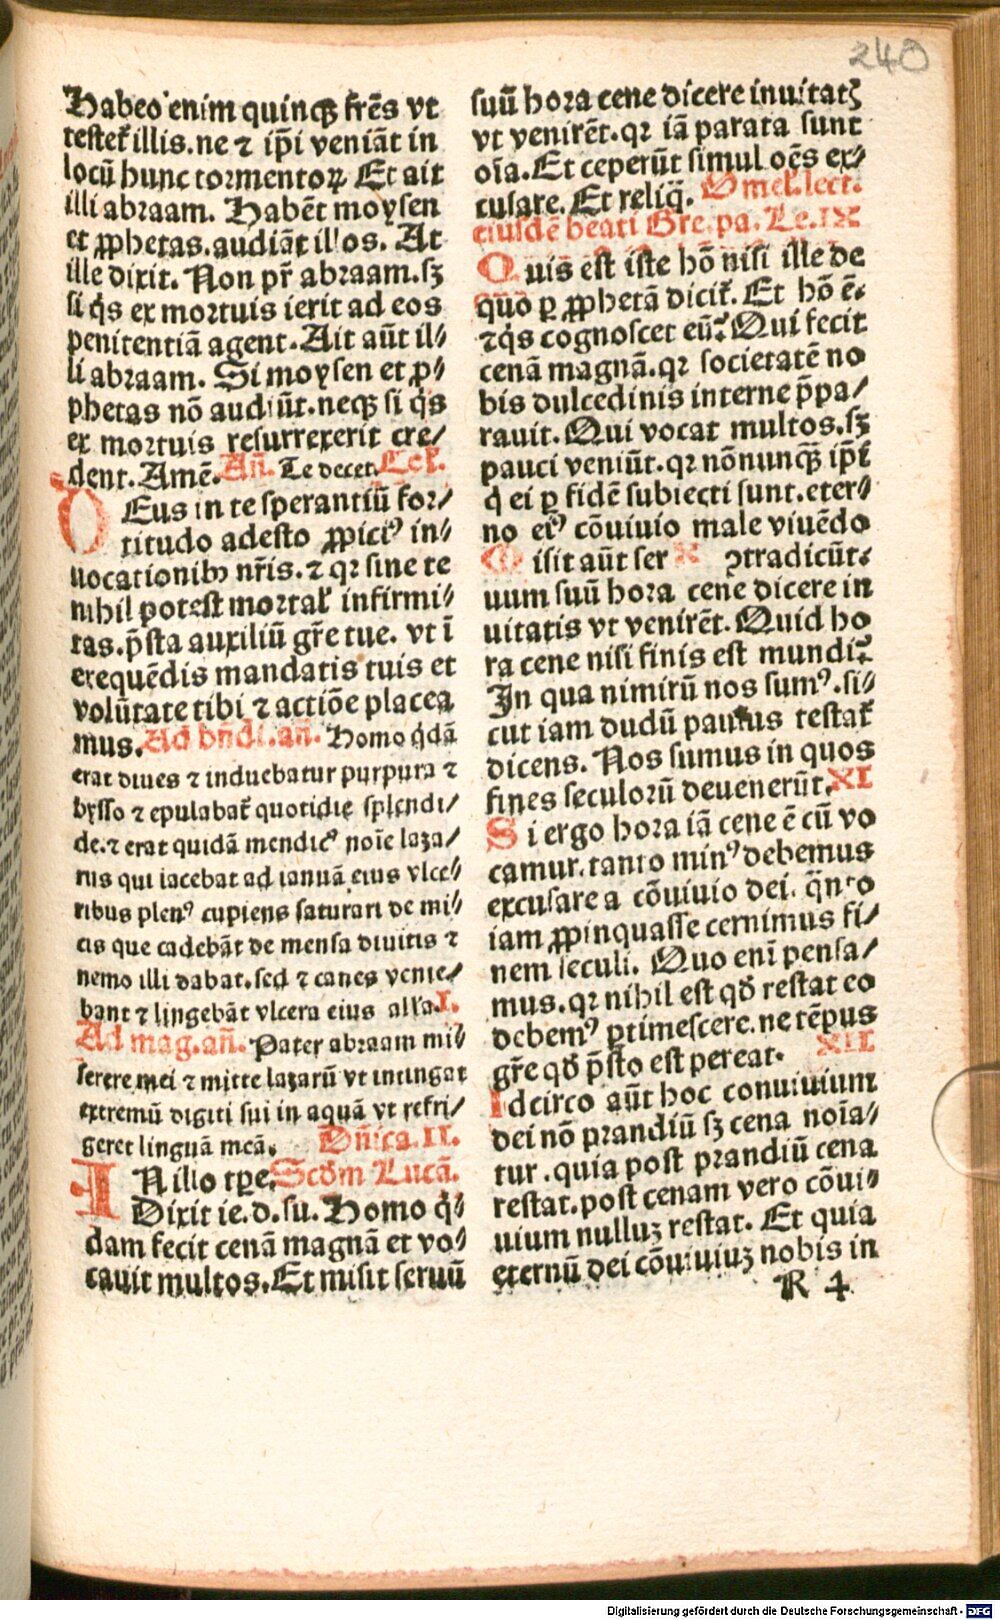 240
Habeo enim quinqꝫ fr̃es vt
testet᷑ illis.ne ⁊ ip̃i veniãt in
locũ hunc tormentoꝝ Et ait
illi abraam. Habẽt moysen
et ꝓphetas.audiãt illos. At
ille dixit. Non pr̃ abraam.sꝫ
si q̇s ex mortuis ierit ad eos
penitentiã agent. Ait aũt il⸗
li abraam. Si moysen et ꝓ⸗
phetas nõ audiũt.neqꝫ si q̇s
ex mortuis resurrexerit cre⸗
dent. Amẽ. Añ. Te decet. Lec̃.
DEus in te sperantiũ for⸗
titudo adesto ꝓpiciꝰ in⸗
uocationibꝫ nr̃is.⁊ qꝛ sine te
nihil potest mortal᷑ infirmi⸗
tas.p̃sta auxiliũ gr̃e tue. vt ĩ
exequẽdis mandatis tuis et
volũtate tibi ⁊ actiõe placea
mus. Ad bñdi.añ. Homo q̇dã
erat diues ⁊ induebatur purpura ⁊
bysso ⁊ epulabat᷑ quotidie splendi⸗
de.⁊ erat quidã mendicꝰ noĩe laza⸗
rus qui iacebat ad ianuã eius vlce⸗
ribus plenꝰ cupiens saturari de mi⸗
cis que cadebãt de mensa diuitis ⁊
nemo illi dabat.sed ⁊ canes venie⸗
bant ⁊ lingebãt vlcera eius alľa. I.
Ad mag.añ. Pater abraam mi⸗
serere mei ⁊ mitte lazarũ vt intingat
extremũ digiti sui in aquã vt refri⸗
geret linguã meã. Dñica.II.
IN illo tꝑe. Scďm Lucã.
Dixit ie.d.su. Homo q̇⸗
dam fecit cenã magnã et vo⸗
cauit multos.Et misit seruũ
suũ hora cene dicere inuitatꝫ
vt venirẽt.qꝛ iã parata sunt
oĩa.Et ceperũt simul oẽs ex⸗
cusare. Et reliq̃. Omel᷑.lect.
eiusdẽ beati Gre.pa. Le.IX
Quis est iste hõ nisi ille de
quo ꝑ ꝓphetã dicit᷑. Et hõ ẽ.
⁊q̇s cognoscet eũ? Qui fecit
cenã magnã.qꝛ societatẽ no
bis dulcedinis interne p̃pa⸗
rauit. Qui vocat multos.sꝫ
pauci veniũt.qꝛ nõnunqꝫ ip̃i
q̇ ei ꝑ fidẽ subiecti sunt.eter⸗
no eiꝰ cõuiuio male viuẽdo
Misit aũt ser X ꝯtradicũt.
uum suũ hora cene dicere in
uitatis vt venirẽt. Quid ho
ra cene nisi finis est mundi?
In qua nimirũ nos sumꝰ.si⸗
cut iam dudũ paulus testat᷑
dicens. Nos sumus in quos
fines seculorũ deuenerũt. XI
Si ergo hora iã cene ẽ cũ vo
camur.tanto minꝰ debemus
excusare a cõuiuio dei. q̃nto
iam ꝓpinquasse cernimus fi⸗
nem seculi. Quo enĩ pensa⸗
mus.qꝛ nihil est qď restat eo
debemꝰ ꝑtimescere.ne tẽpus
gr̃e qď p̃sto est pereat. XII
Idcirco aũt hoc conuiuium
dei nõ prandiũ sꝫ cena noĩa⸗
tur.quia post prandiũ cena
restat.post cenam vero cõui⸗
uium nulluꝫ restat. Et quia
eternũ dei cõuiuiuꝫ nobis in
R 4
Digitalisierung gefördert durch die Deutsche Forschungsgemeinschaft - DFG